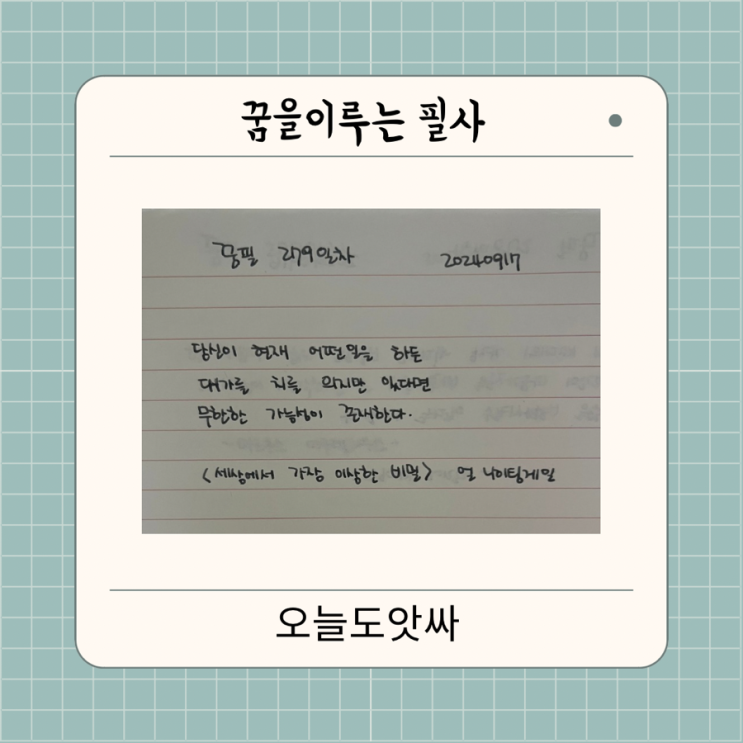 꿈을이루는 필사
꿈필 279일차 20240917
당신이 현재 어떤일을 하든
대가를 치를 의지만 있다면
무한한 가능성이 존재한다.
<세상에서 가장 이상한 비밀> 얼 나이팅게일
오늘도앗싸